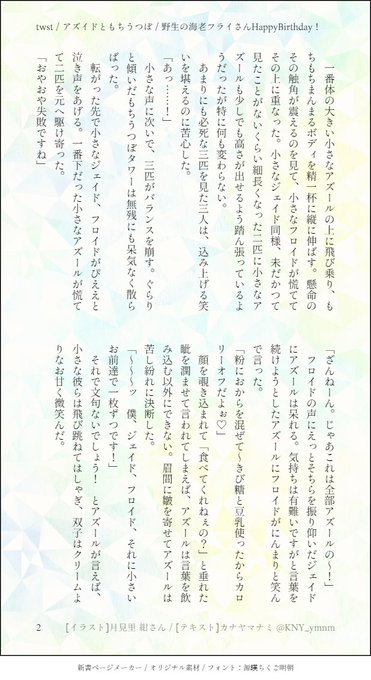 twst / アズイドともちうつぼ / 野生の海老フライさんHappyBirthday！
一番体の大きい小さなアズールの上に飛び乗り、も
ちもちまんまるボディを精一杯に縦に伸ばす。懸命の
その触角が震えるのを見て、小さなフロイドが慌てて
その上に重なった。小さなジェイド同様、未だかつて
見たことがないくらい細長くなった二匹に小さなア
ズールも少しでも高さが出せるよう踏ん張っているよ
うだったが特に何も変わらない。
あまりにも必死な三匹を見た三人は、込み上げる笑
いを堪えるのに苦心した。
「あっ……！」
小さな声に次いで、三匹がバランスを崩す。ぐらり
と傾いだもちうつぼタワーは無残にも呆気なく散ら
ばった。
転がった先で小さなジェイド、フロイドがぴええと
泣き声をあげる。一番下だった小さなアズールが慌て
て二匹を元へ駆け寄った。
「おやおや失敗ですね」
「ざんねーん。じゃあこれは全部アズールの〜！」
フロイドの声にえっとそちらを振り仰いだジェイド
にアズールは呆れる。気持ちは有難いですがと言葉を
続けようとしたアズールにフロイドがにんまりと笑ん
で言った。
「粉におからを混ぜて〜きび糖と豆乳使ったからカロ
リーオフだよぉ♡」
顔を覗き込まれて「食べてくれねぇの？」と垂れた
眦を潤ませて言われてしまえば、アズールは言葉を飲
み込む以外にできない。眉間に皺を寄せてアズールは
苦し紛れに決断した。
「〜〜〜ッ　僕、ジェイド、フロイド、それに小さい
お前達で一枚ずつです！」
それで文句ないでしょう！　とアズールが言えば、
小さな彼らは飛び跳ねてはしゃぎ、双子はクリームよ
りなお甘く微笑んだ。
2 [イラスト]月見里 紺さん / [テキスト]カナヤマナミ @KNY_ymnm
新書ページメーカー / オリジナル素材 / フォント：源暎ちくご明朝